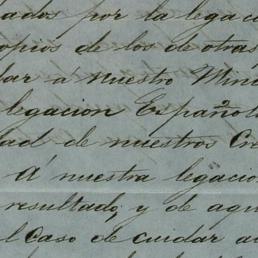 ados por la legac
opios de los de otras
dar á nuestro Mini
legacion Española
dad de nuestros Cre
Á nuestra legacion
resultado, y de aqu
l Caso de cuidar